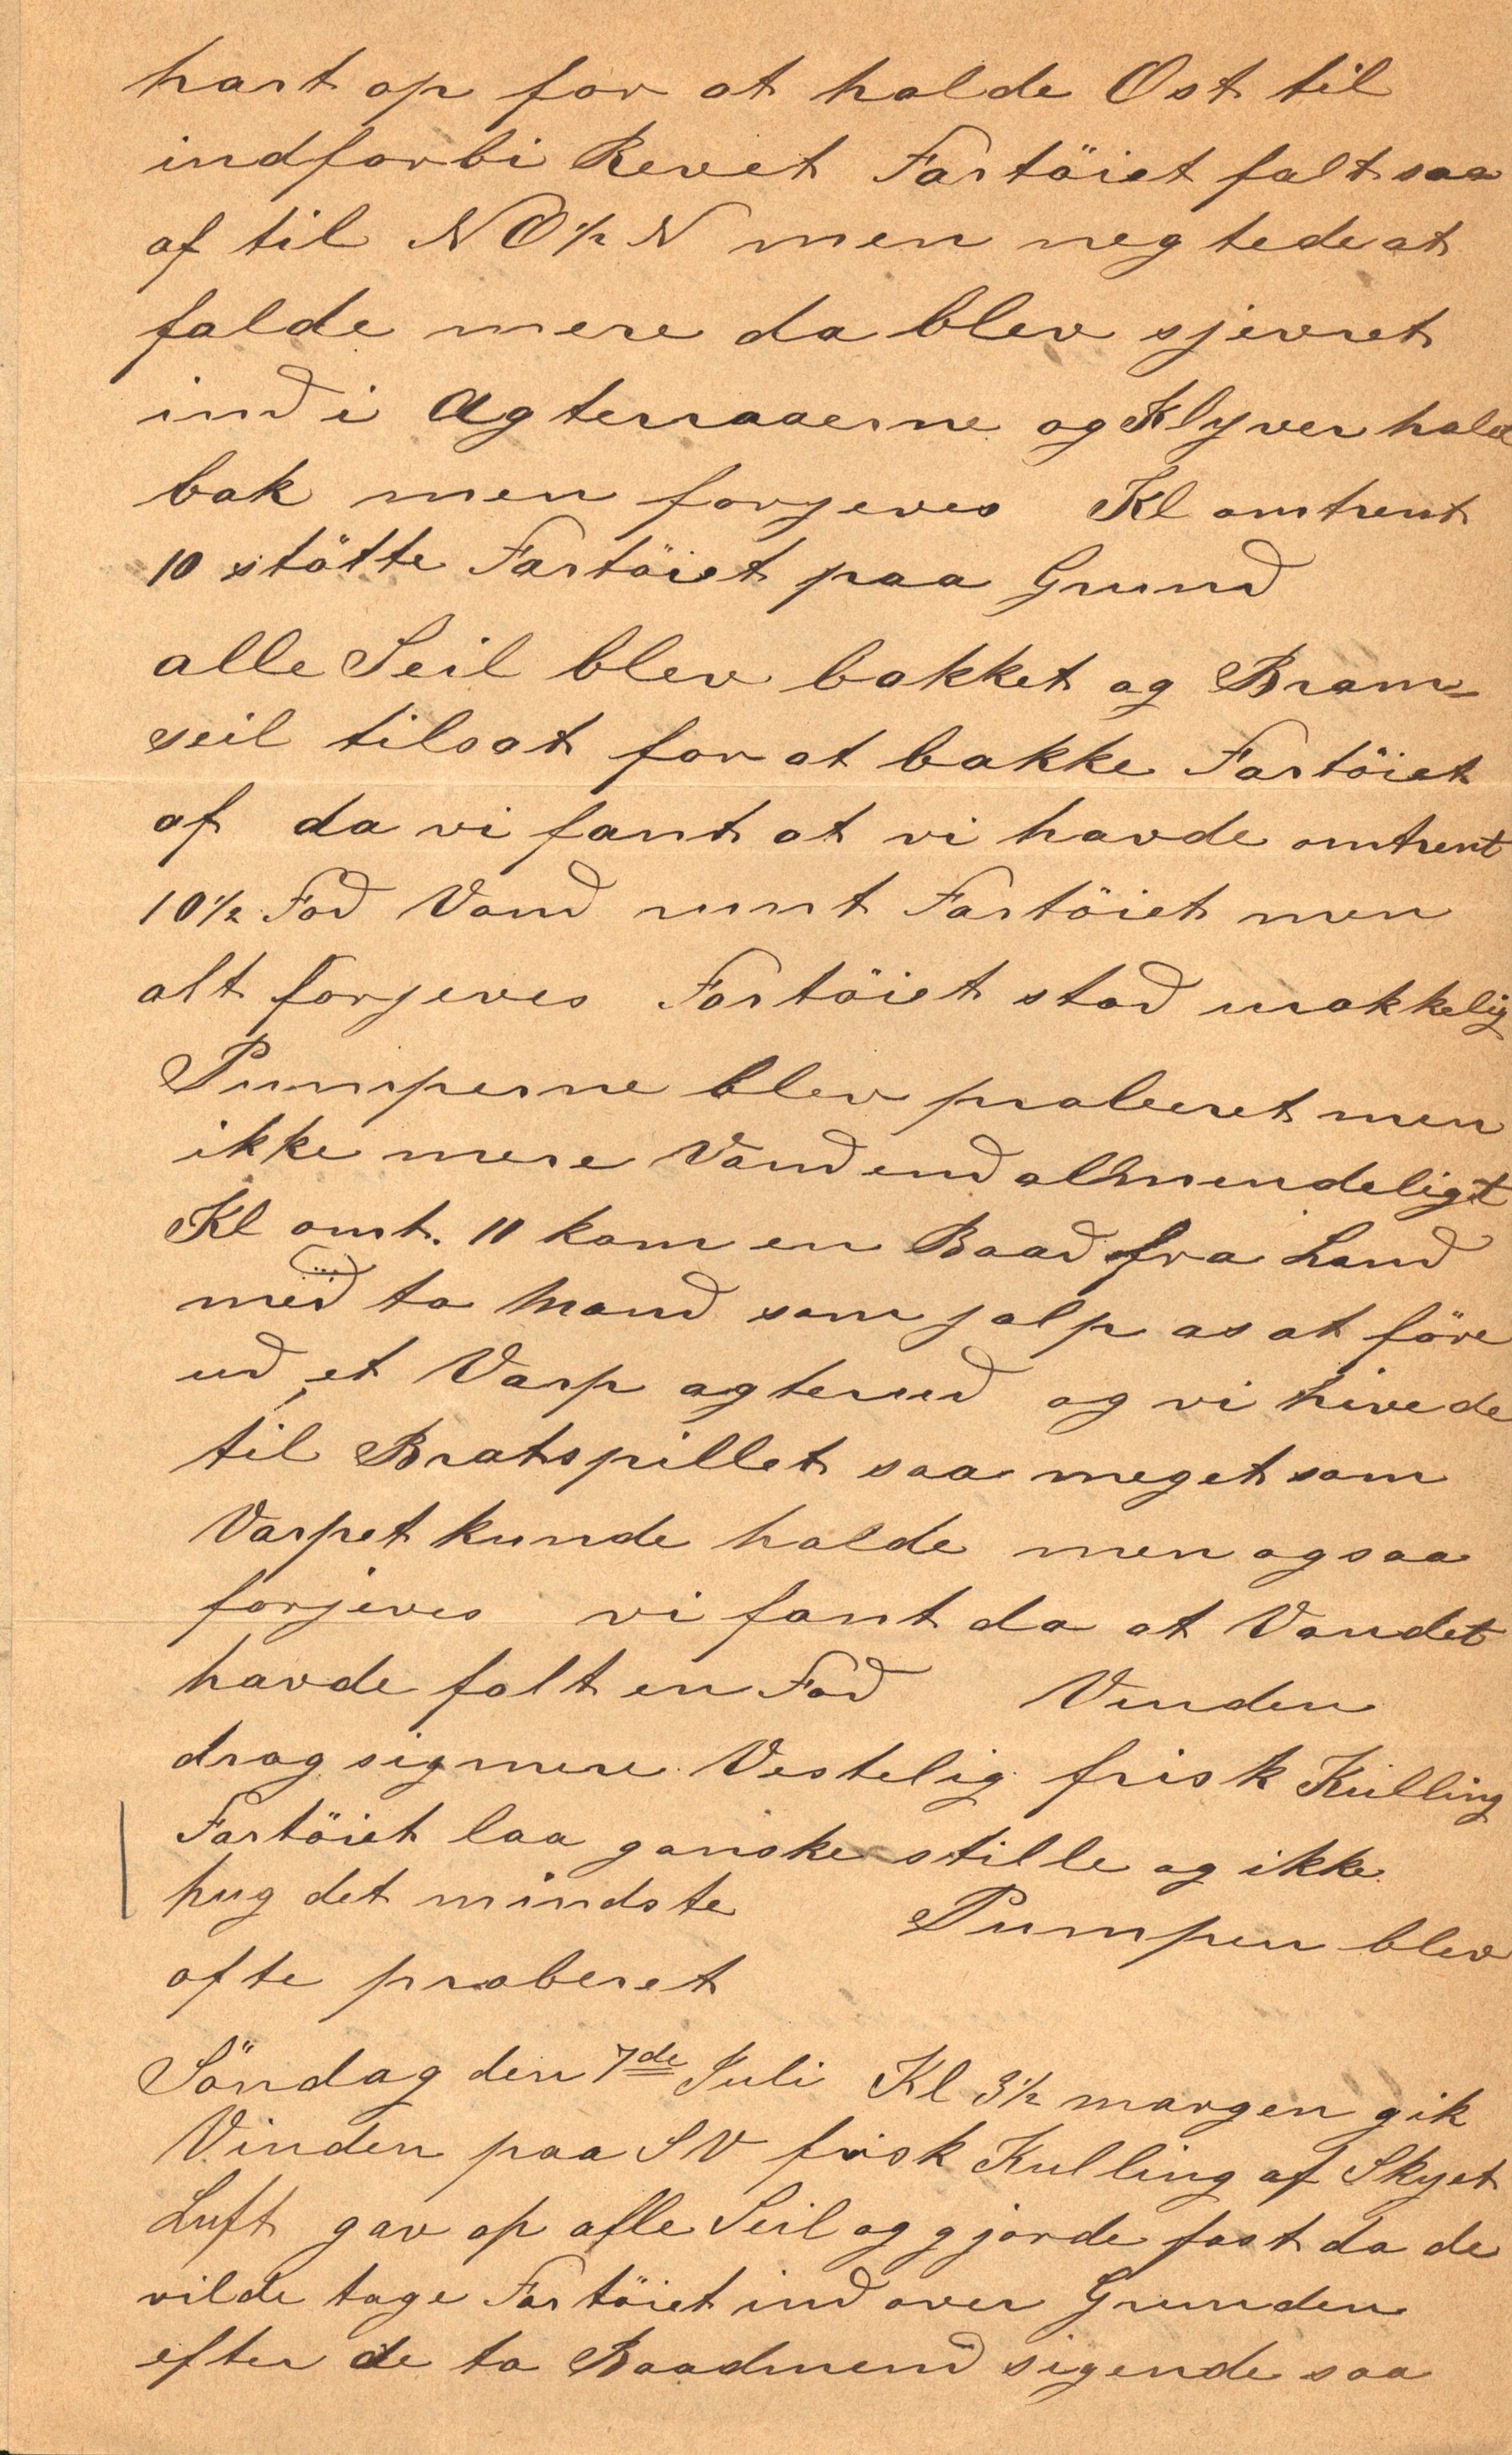 hart op for at holde Ost til
indforbi Revet Fartöiet falt saa
af til NO½N men negtede at
falde mere da blev sjevret
ind i Agterraaerne og Klyver halet
bak men forgjeves Kl omtrent
10 stötte Fartöiet paa Grund
alle Seil blev bakket og Bram-
seil tilsat for at bakke Fartöiet
af da vi fant at vi havde omtrent
10½ Fod Vand runt Fartöiet men
alt forgjeves Fartöiet stod urokkelig
Pumperne blev proberet men
ikke mere Vand end almendeligt
Kl omt. 11 kom en Baad fra Land
med to Mand som jalp os at före
ud et Varp agterud og vi hivede
til Bratspillet saa meget som
Varpet kunde holde men ogsaa
forjeves vi fant da at Vandet
havde falt en Fod Vinden
drog sig mere Vestelig frisk Kulling
Fartöiet laa ganske stille og ikke
hug det mindste Pumpen blev
ofte proberet
Söndag den 7de Juli Kl 3½ morgen gik
Vinden paa SV frisk Kulling af Skyet
Luft gav op alle Seil og gjorde fast da de
vilde tage Fartöiet ind over Grunden
efter de to Baadmend sigende saa